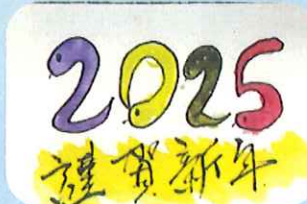 2025
謹賀新年